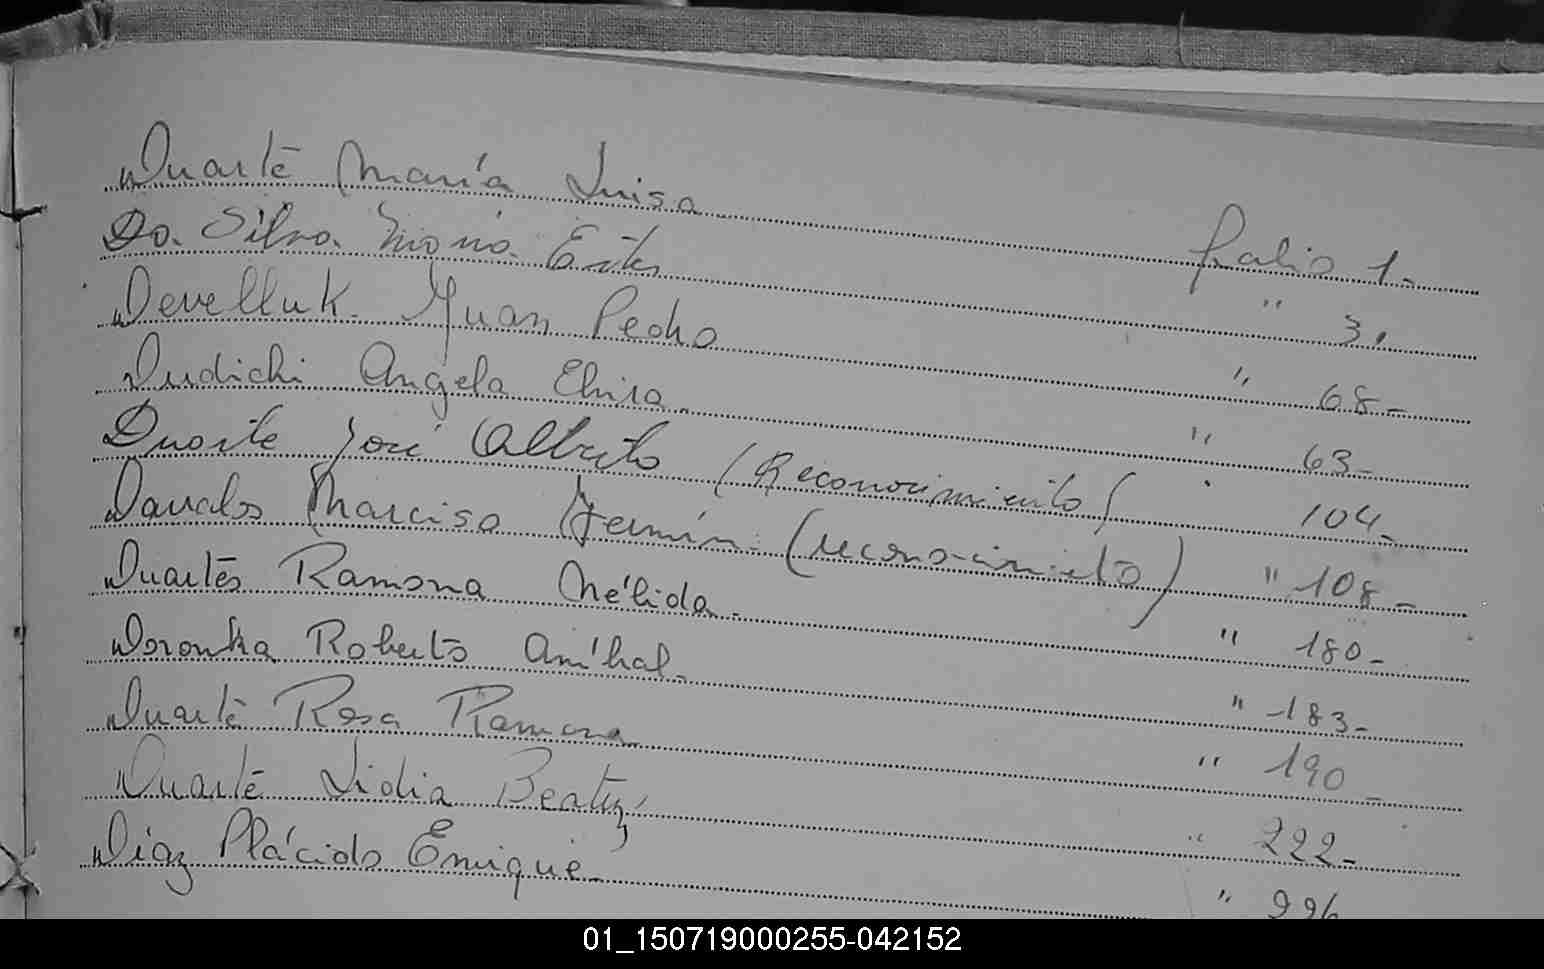 Duarte María Luisa folio 1-
Da Silva María Ester " 3.
Develluk Juan Pedro " 68-
Dudichi Angela Elvira " 63-
Duarte José Alberto (Reconocimiento) 104-
Davalos Narciso Fermín (reconocimieto) " 108-
Duartes Ramona Nélida " 180-
Doronka Roberto Aníbal " 183-
Duarte Rosa Ramona " 190-
Duarte Lidia Beatriz " 222-
Diaz Plácido Enrique " 226
01_150719000255-042152